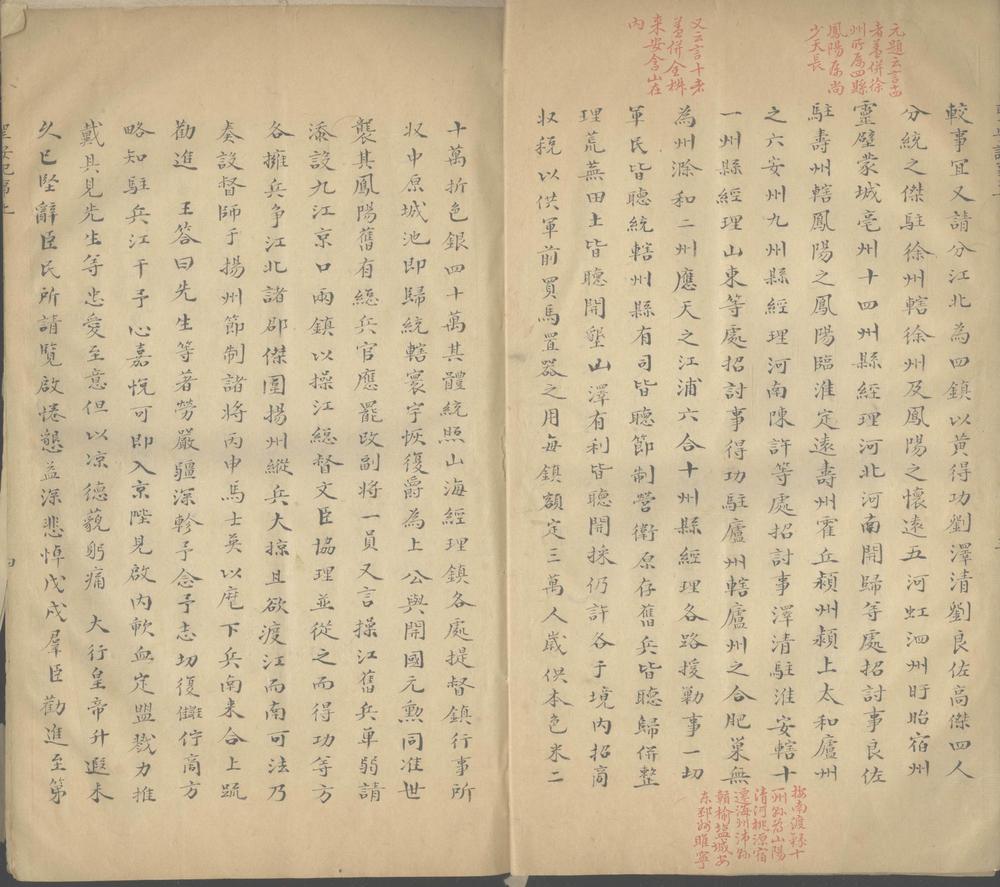 較事宜又請分江北為四鎮以黃得功劉澤清劉良佐高傑四人
分統之傑駐徐州轄徐州及鳳陽之懷遠五河虹泗州盱眙宿州
靈璧蒙城亳州十四州縣經理河北河南開歸等處招討事良佐
駐壽州轄鳳陽之鳳陽臨淮定遠壽州霍丘潁州潁上太和廬州
之六安州九州縣經理河南陳許等處招討事澤清駐淮安轄十
一州縣經理山東等處招討事得功駐廬州轄廬州之合肥巢無
為州滁和二州應天之江浦六合十州縣經理各路援勦事一切
軍民皆聽統轄州縣有司皆聽節制營衛原存舊兵皆聽歸併整
理荒蕪田土皆聽開墾山澤有利皆聽開採仍許各于境內招商
收稅以供軍前買馬置器之用每鎮額定三萬人歲供本色米二
元題云言西
者蓋併徐
州所屬四縣
鳳陽屬尚
少天長
又云言十者
蓋併全椒
來安含山在
內
按南渡錄十
一州縣為山陽
清河桃源宿
遷海州沛縣
贛榆鹽城安
東邳州睢寧
十萬折色銀四十萬其體統照山海經理鎮各處提督鎮行事所
收中原城池即歸統轄寰宇恢復爵為上公與開國元勳同准世
襲其鳳陽舊有總兵官應罷改副將一員又言操江舊兵單弱請
添設九江京口兩鎮以操江總督文臣協理並從之而得功等方
各擁兵爭江北諸郡傑圍揚州縱兵大掠且欲渡江而南可法乃
奏設督師于揚州節制諸將丙申馬士英以麾下兵南來合上疏
勸進 王答曰先生等著勞嚴疆深軫予念予志切復讎佇商方
略知駐兵江干予心嘉悅可即入京陛見啟內軟血定盟戮力推
戴具見先生等忠愛至意但以凉德藐躬痛 大行皇帝升遐未
久已堅辭臣民所請覽啟惓懇益深悲悼戊戌羣臣勸進至第